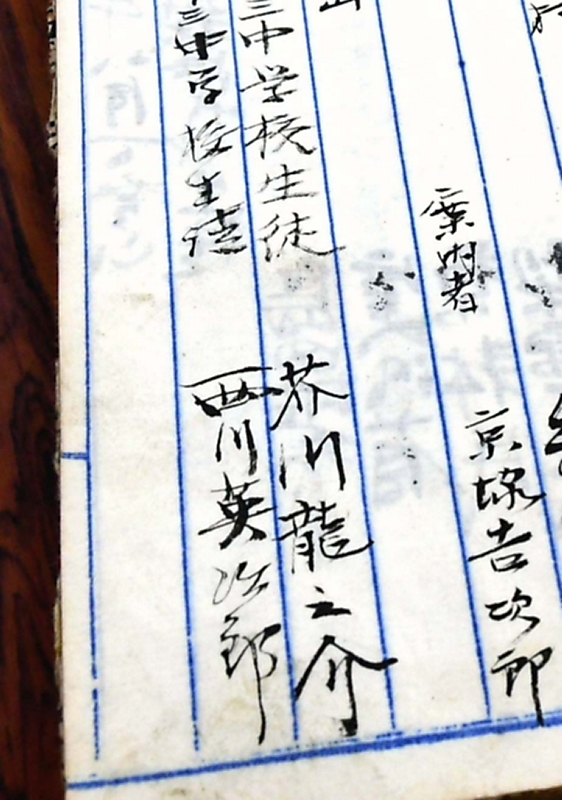 京塚吉次郎
三中学校生徒 芥川龍之介
三中学校生徒 西川英次郎